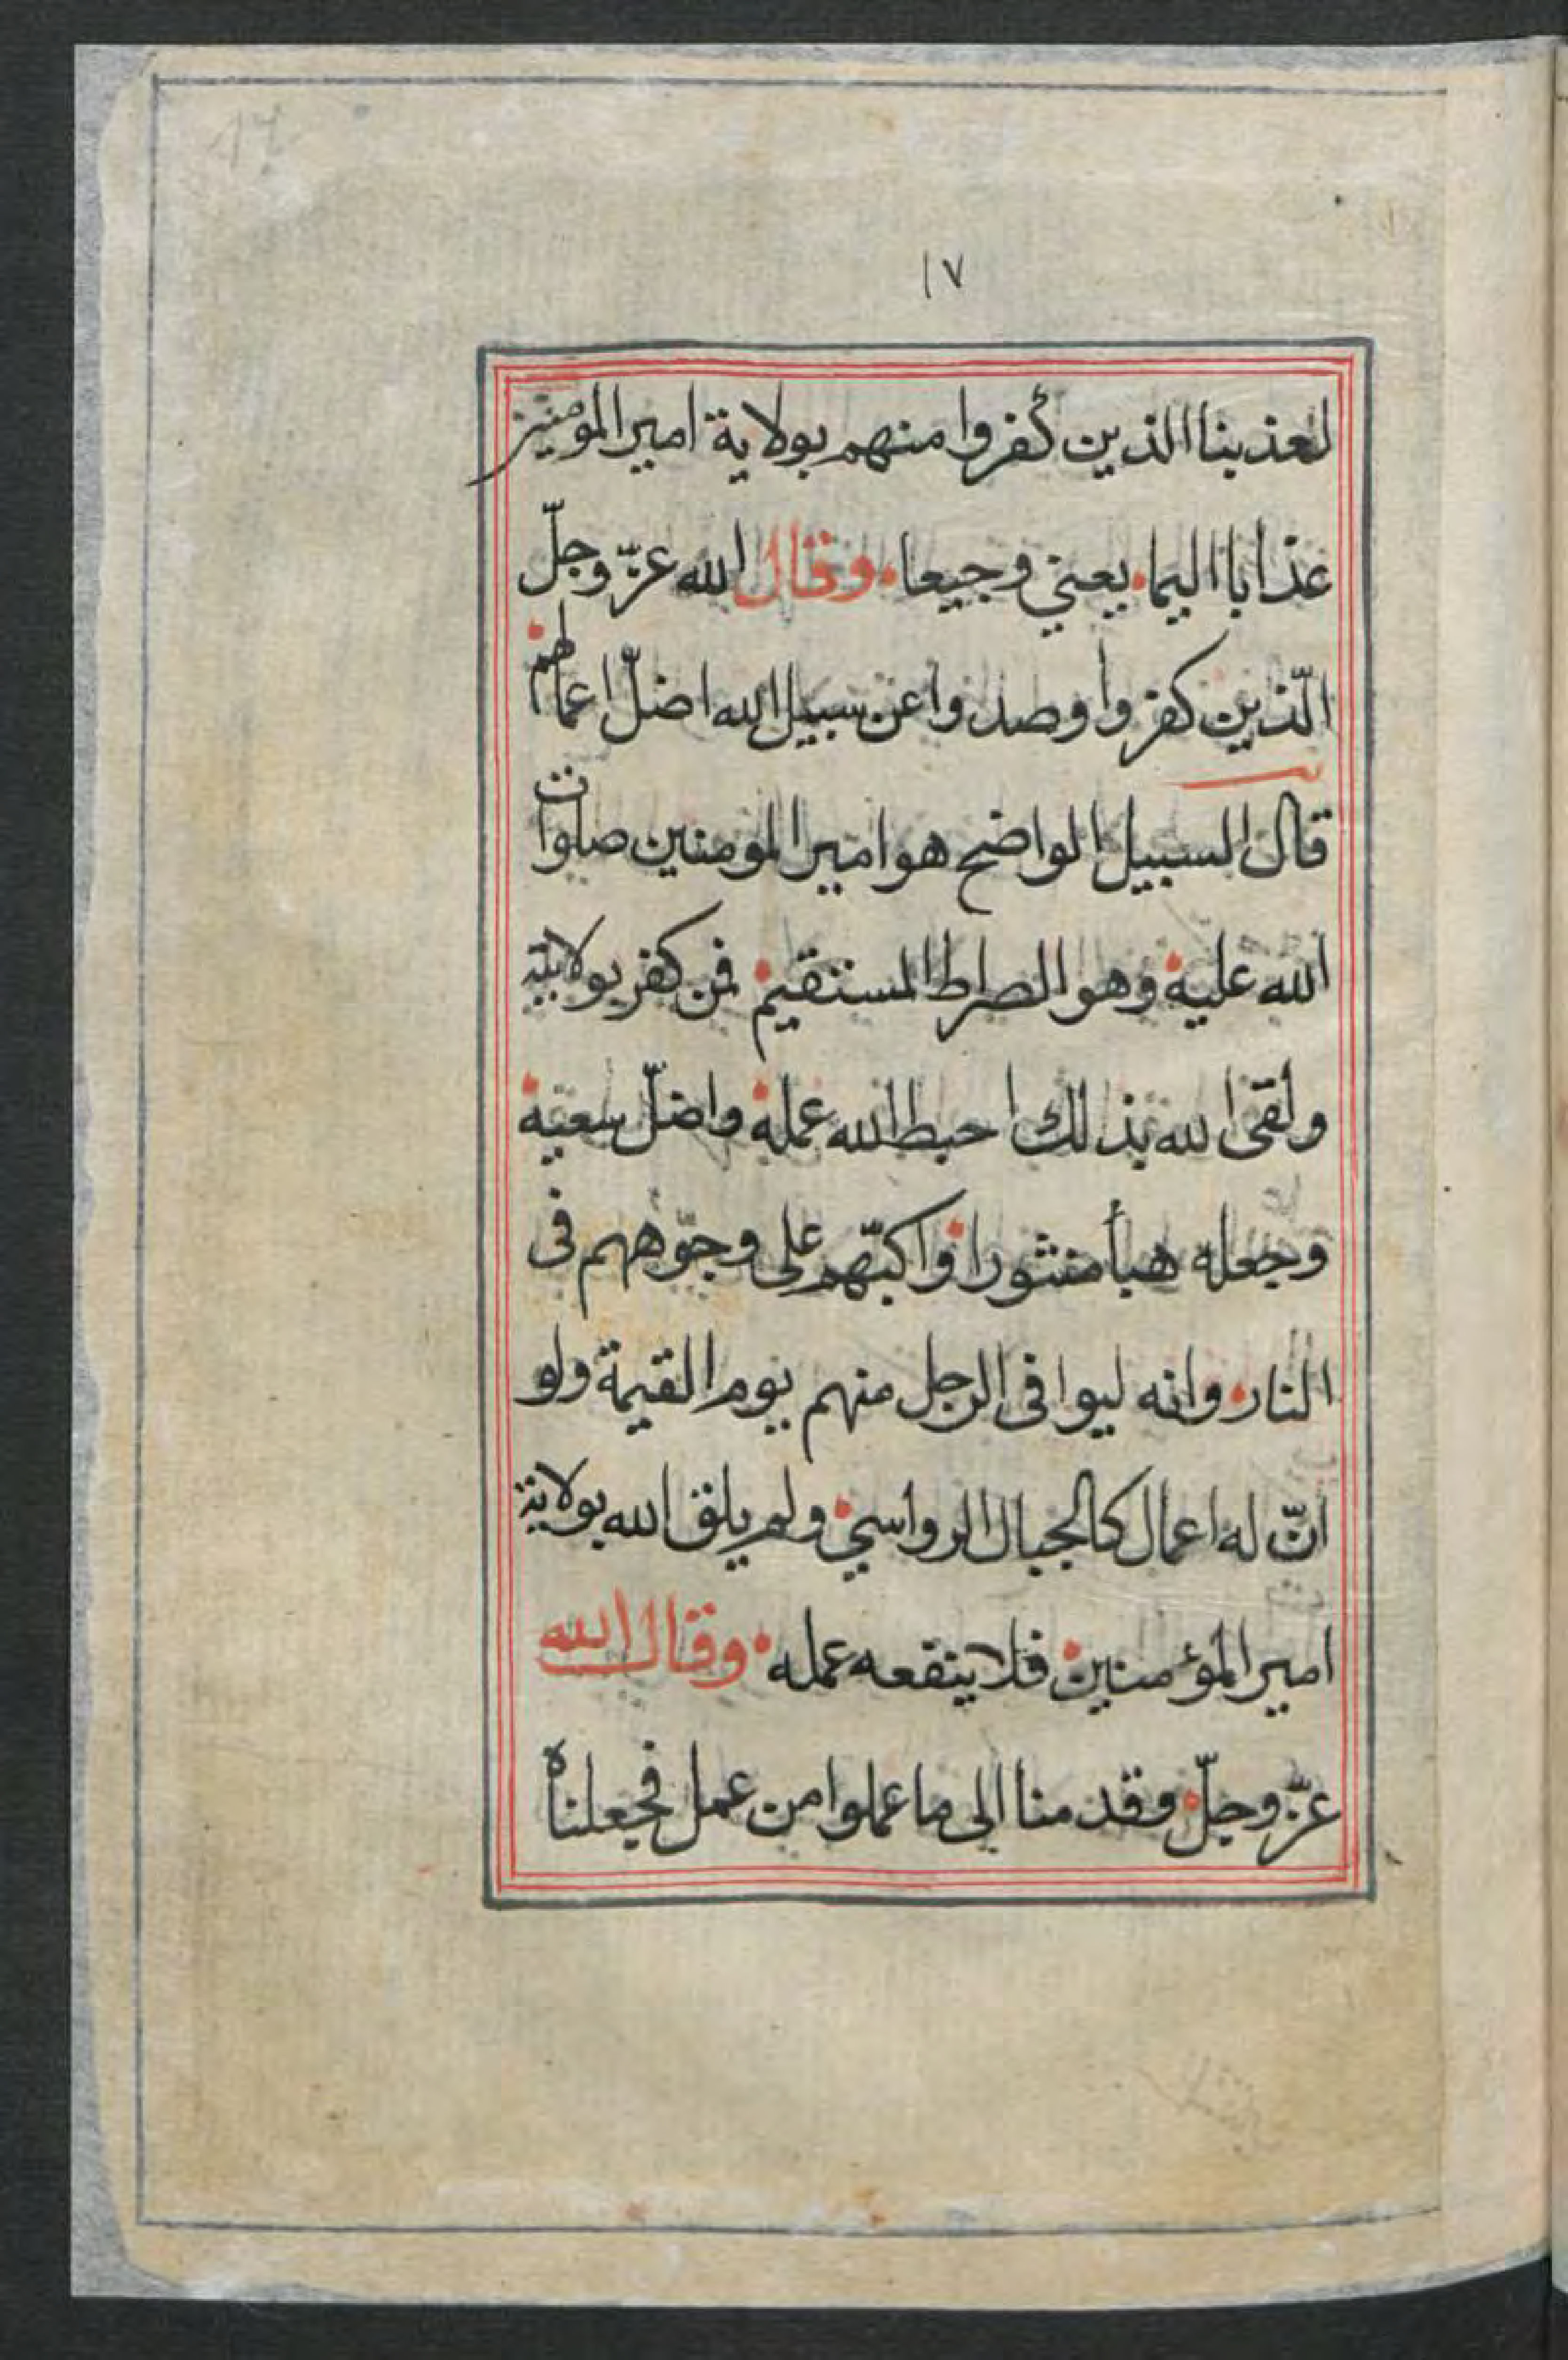 ١٧
لعذبنا الذين كفروا منهم بولاية امير المومنين
عذابا اليما يعني وجيعا وقال الله عزّ وجلّ
الّذين كفروا وصدوا عن سبيل الله اضلّ اعمالهم
قال السبيل الواضح هو امير المومنين صلوات
الله عليه وهو الصراط المستقيم فمن كفر بولايته
ولقى الله بذلك احبط الله عمله واضلّ سعيه
وجعله هبأ منثورا واكبّهم على وجوّههم فى
النار وانه ليوافى الرجل منهم يوم القيمة ولو
انّ له اعمال كالجبال الرواسي ولم يلق الله بولاية
امير المؤمنين فلا ينفعه عمله وقال الله
عزّ وجلّ وقدمنا الى ما عملوا من عمل فجعلناه